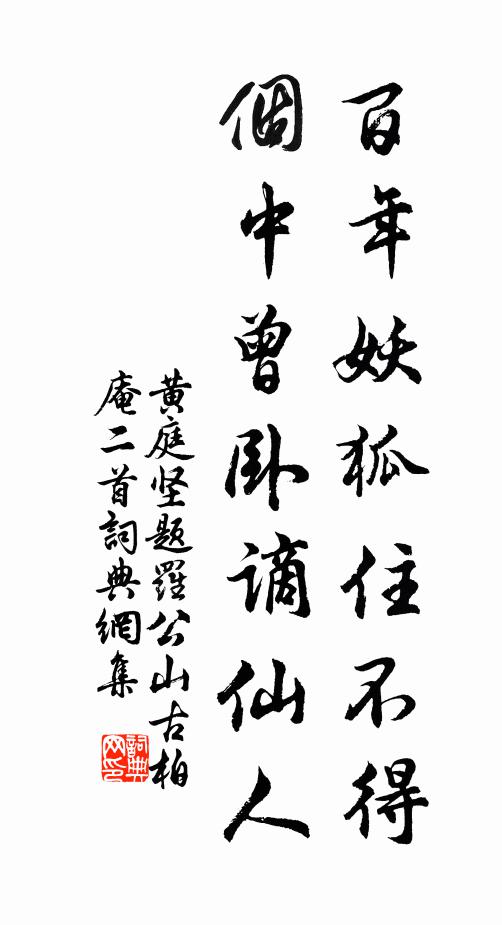 百年妖狐住不得
個中曾卧謫仙人
黄庭坚题羅公山古柏
庵二首詞典網集
詞典
网印